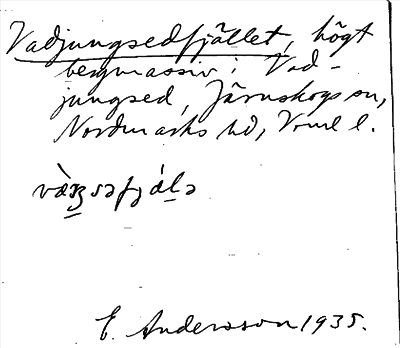 Vadjungsedfjället, högt
bergmassiv i Vad-
jungsed, Järnskogs sn,
Nordmarks hd, Vrml l.
E. Andersson 1935.